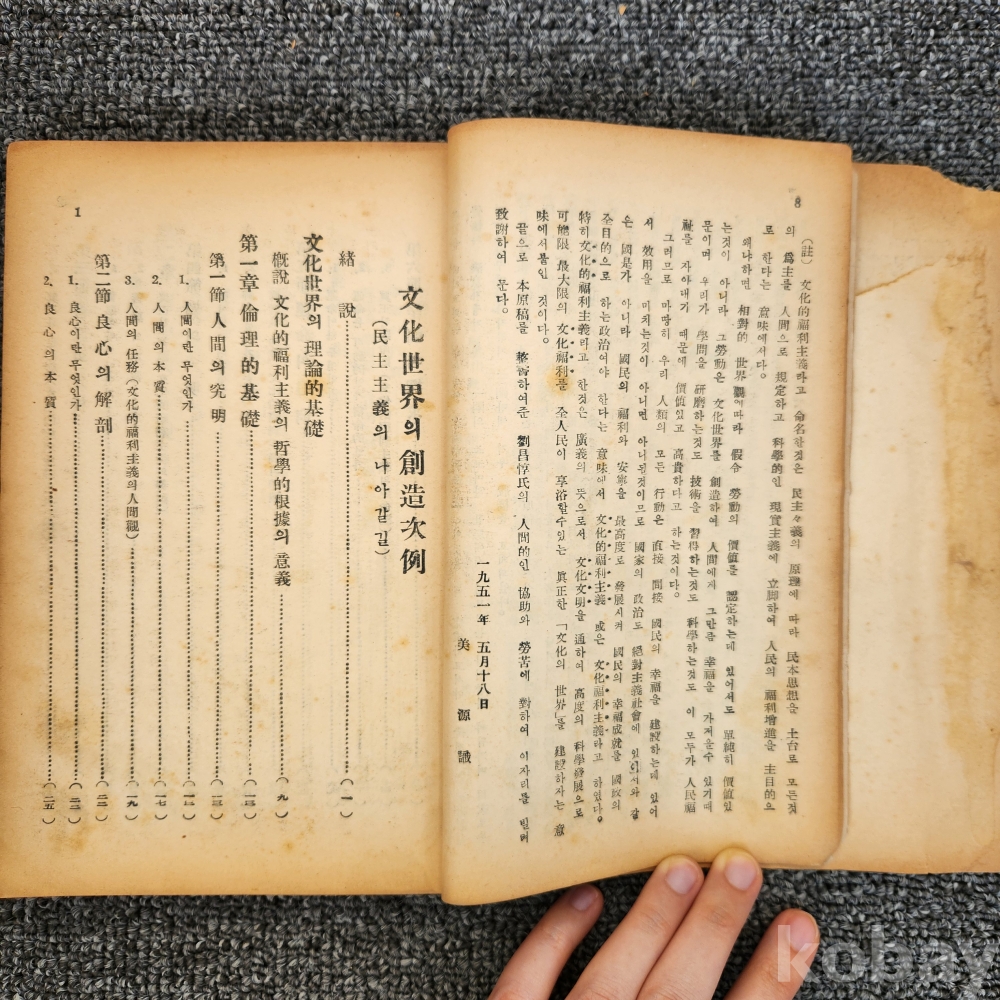 8
(註) 文化的福利主義라고 命名한것은 民主々義의 原理에 따라 民本思想을 土台로 모든것
의 爲主를 人間으로 規定하고 科學的인 現實主義에 立脚하여 人民의 福利增進을 主目的으
로 한다는 意味에서다.
왜냐하면 相對的 世界觀에따라 假令 勞動의 價値를 認定하는데 있어서도 單純히 價値있
는것이 아니라 그勞動은 文化世界를 創造하여 人間에게 그만큼 幸福을 가져올수 있기때
문이며 우리가 學問을 研磨하는것도 技術을 習得하는것도 科學하는것도 이 모두가 人民福
祉를 자아내기 때문에 價値있고 高貴하다고 하는것이다.
그러므로 마땅히 우리 人類의 모든 行動은 直接 間接 國民의 幸福을 建設하는데 있어
서 效用을 미치는것이 아니면 아니된것이므로 國家의 政治도 絕對主義社會에 있어서와 같
은 國是가 아니라 國民의 福利와 安寧을 最高度로 發展시켜 國民의 幸福成就를 國政의
全目的으로 하는政治여야 한다는 意味에서 文化的福利主義 或은 文化福利主義라고 하였다。
特히 文化的福利主義라고 한것은 廣義의 뜻으로서 文化文明을 通하여 高度의 科學發展으로
可能限 最大限의 文化福利를 全人民이 享浴할수있는 眞正한 「文化의 世界」를 建設하자는 意
味에서붙인 것이다.
끝으로 本原稿를 整書하여준 劉昌惇氏의 人間的인 協助와 勞苦에 對하여 이자리를 빌려
致謝하여 둔다.
一九五一年 五月十八日
美源 識
文化世界의 創造 次例
(民主主義의 나아갈길)
緖說……(一)
文化世界의 理論的基礎
槪說 文化的福利主義의 哲學的根據의 意義……(九)
第一章 倫理的基礎……(一三)
第一節 人間의 究明……(一三)
1. 人間이란 무엇인가
2. 人間의 本質……(一七)
3. 人間의 任務(文化的福利主義의人間觀)……(一九)
第二節 良心의 解剖……(二二)
1. 良心이란무엇인가……(二二)
2. 良心의 本質……(二五)
1
kobay